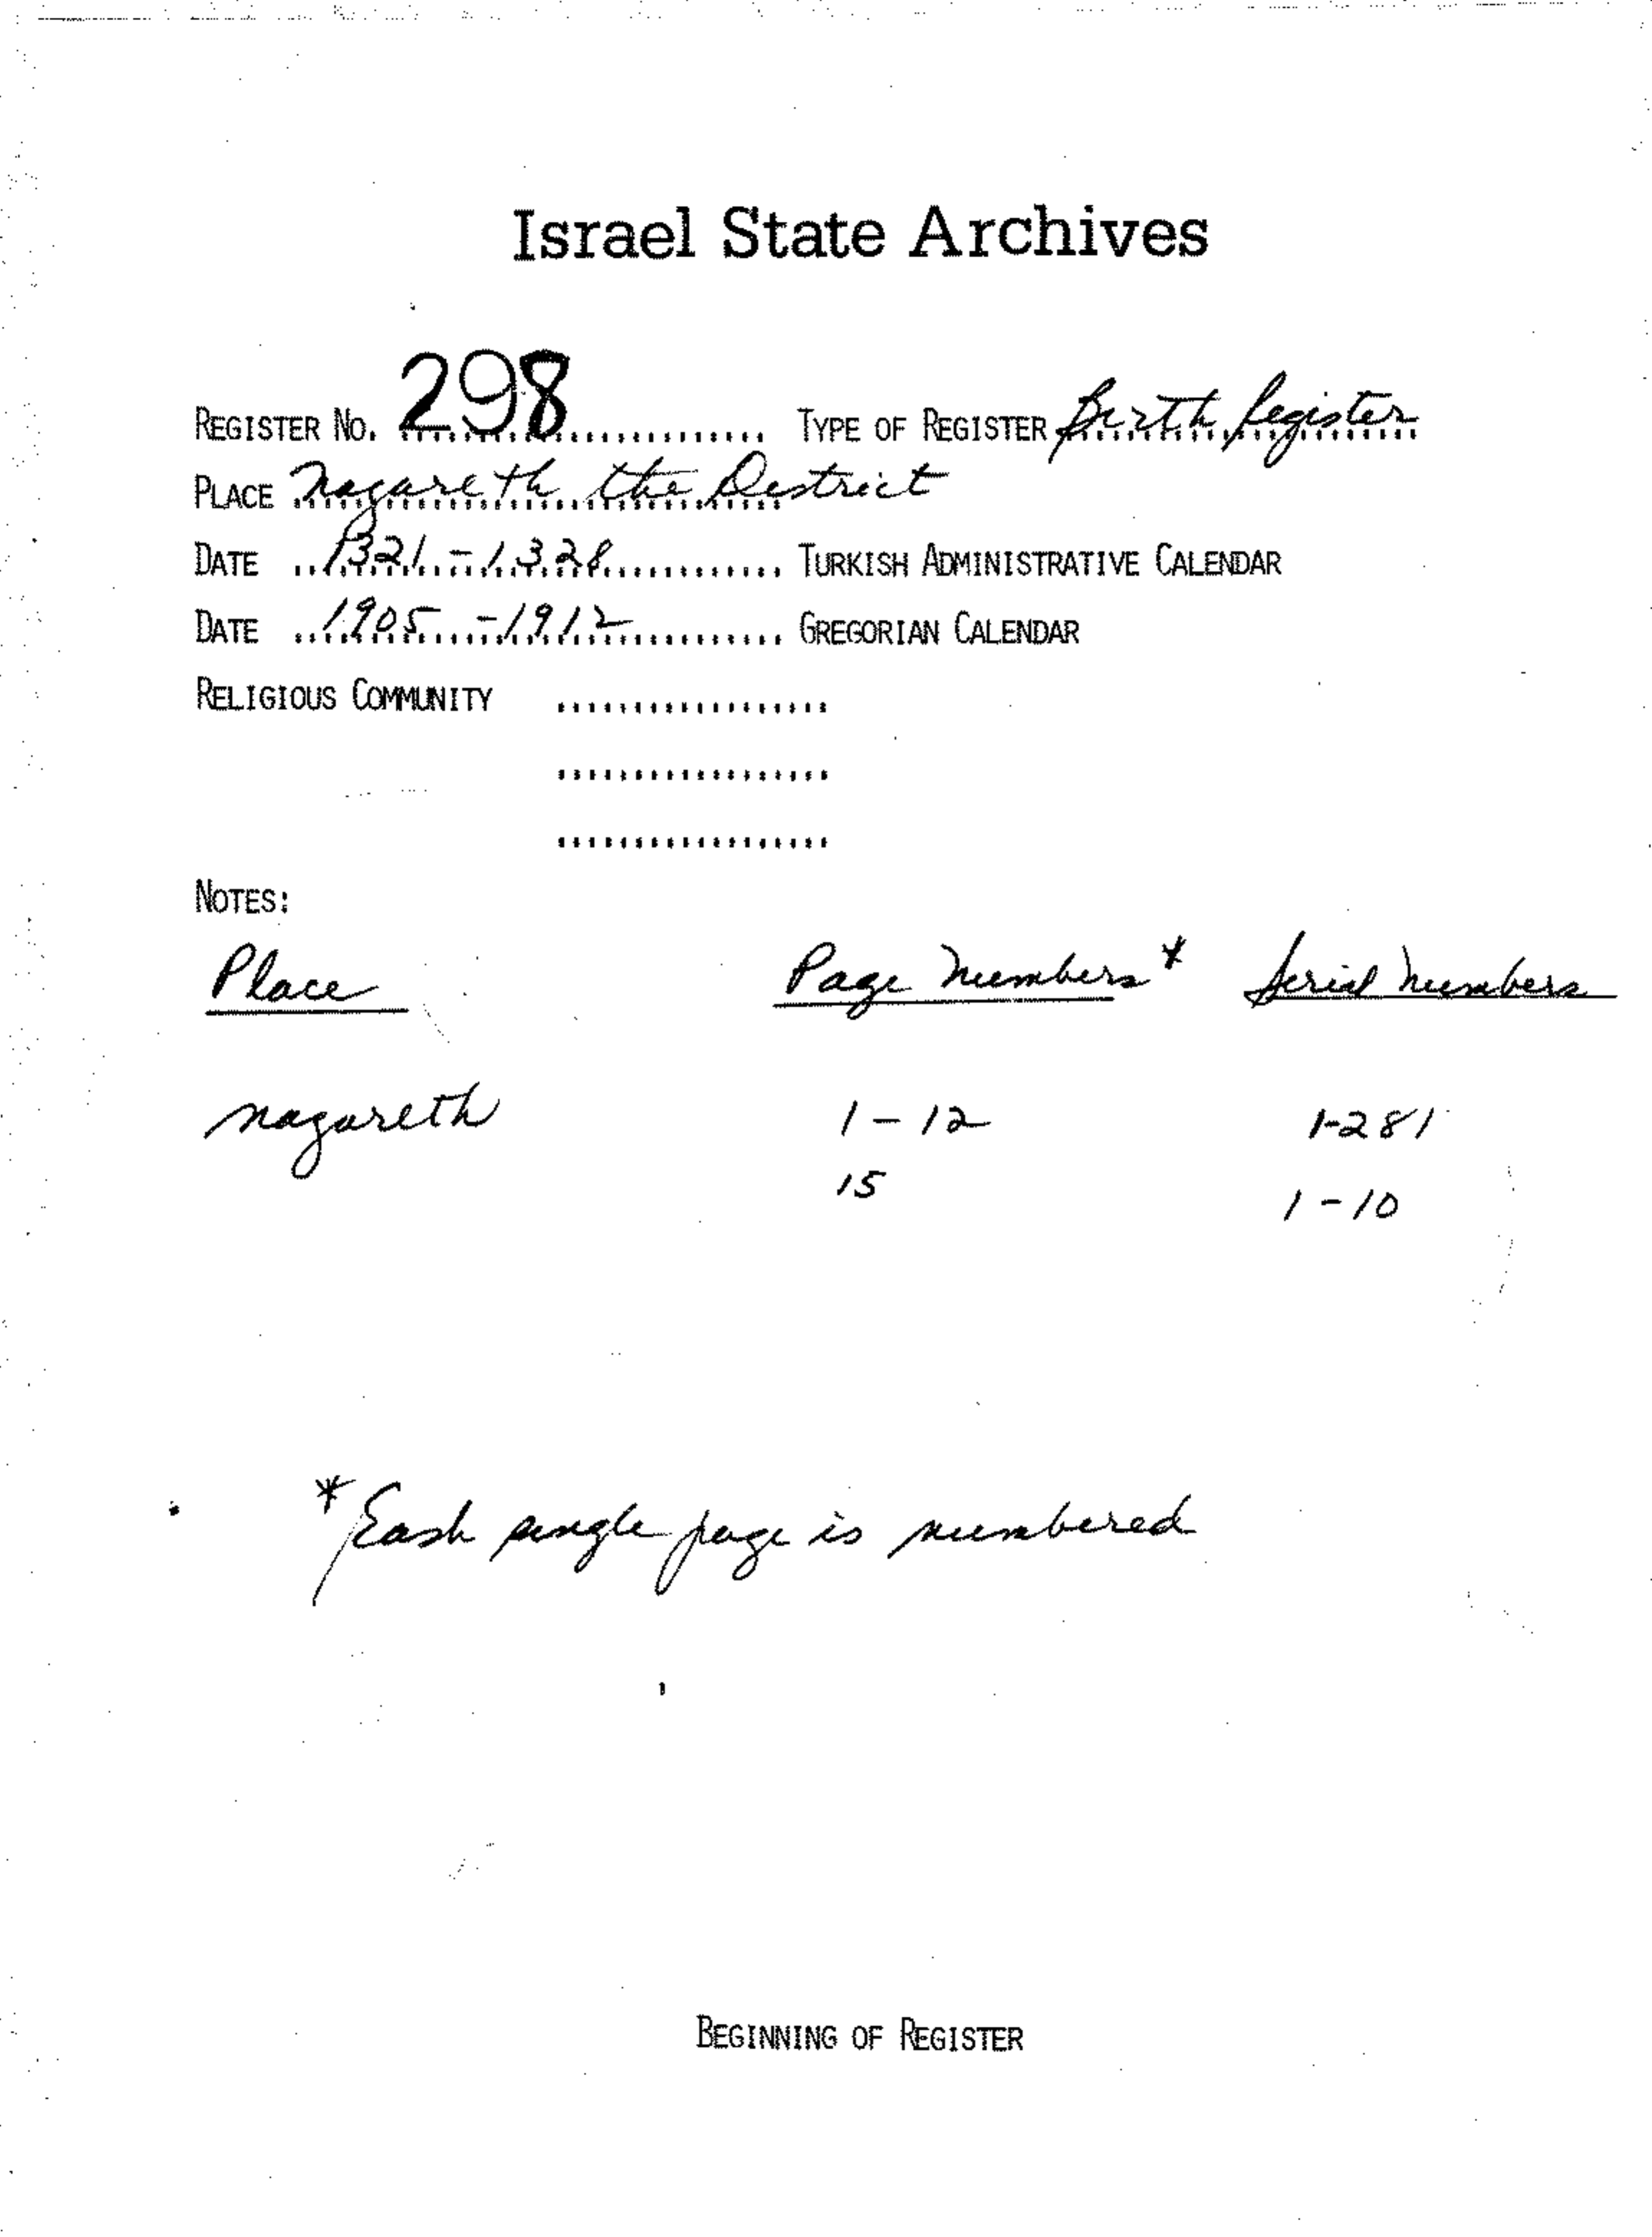 Israel State Archives
REGISTER No. 298 TYPE OF REGISTER Birth Register
PLACE Nazareth the District
DATE 1321-1328 TURKISH ADMINISTRATIVE CALENDAR
DATE 1905-1912 GREGORIAN CALENDAR
RELIGIOUS COMMUNITY
NOTES:
Place Page Numbers* Serial Numbers
Nazareth 1-12 1-281
15 1-10
* Each single page is numbered
BEGINNING OF REGISTER